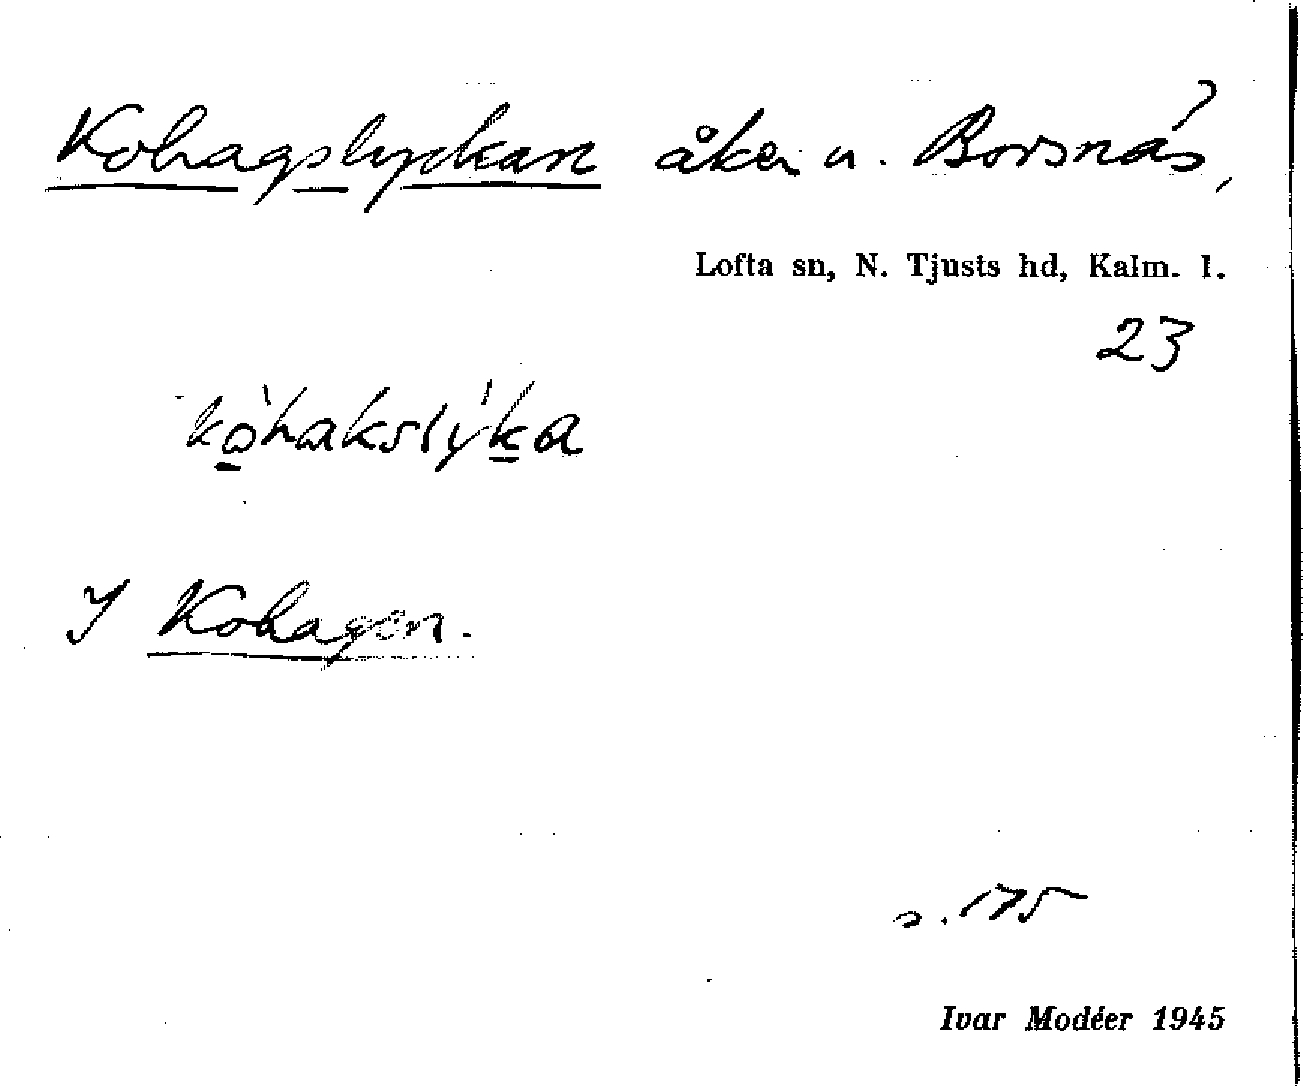 Kohagslyckan åker u. Borsnäs,
Lofta sn, N. Tjusts hd, Kalm. l.
23
kò̱hakslý̀ḵa
I Kohagen.
s. 175
Ivar Modéer 1945